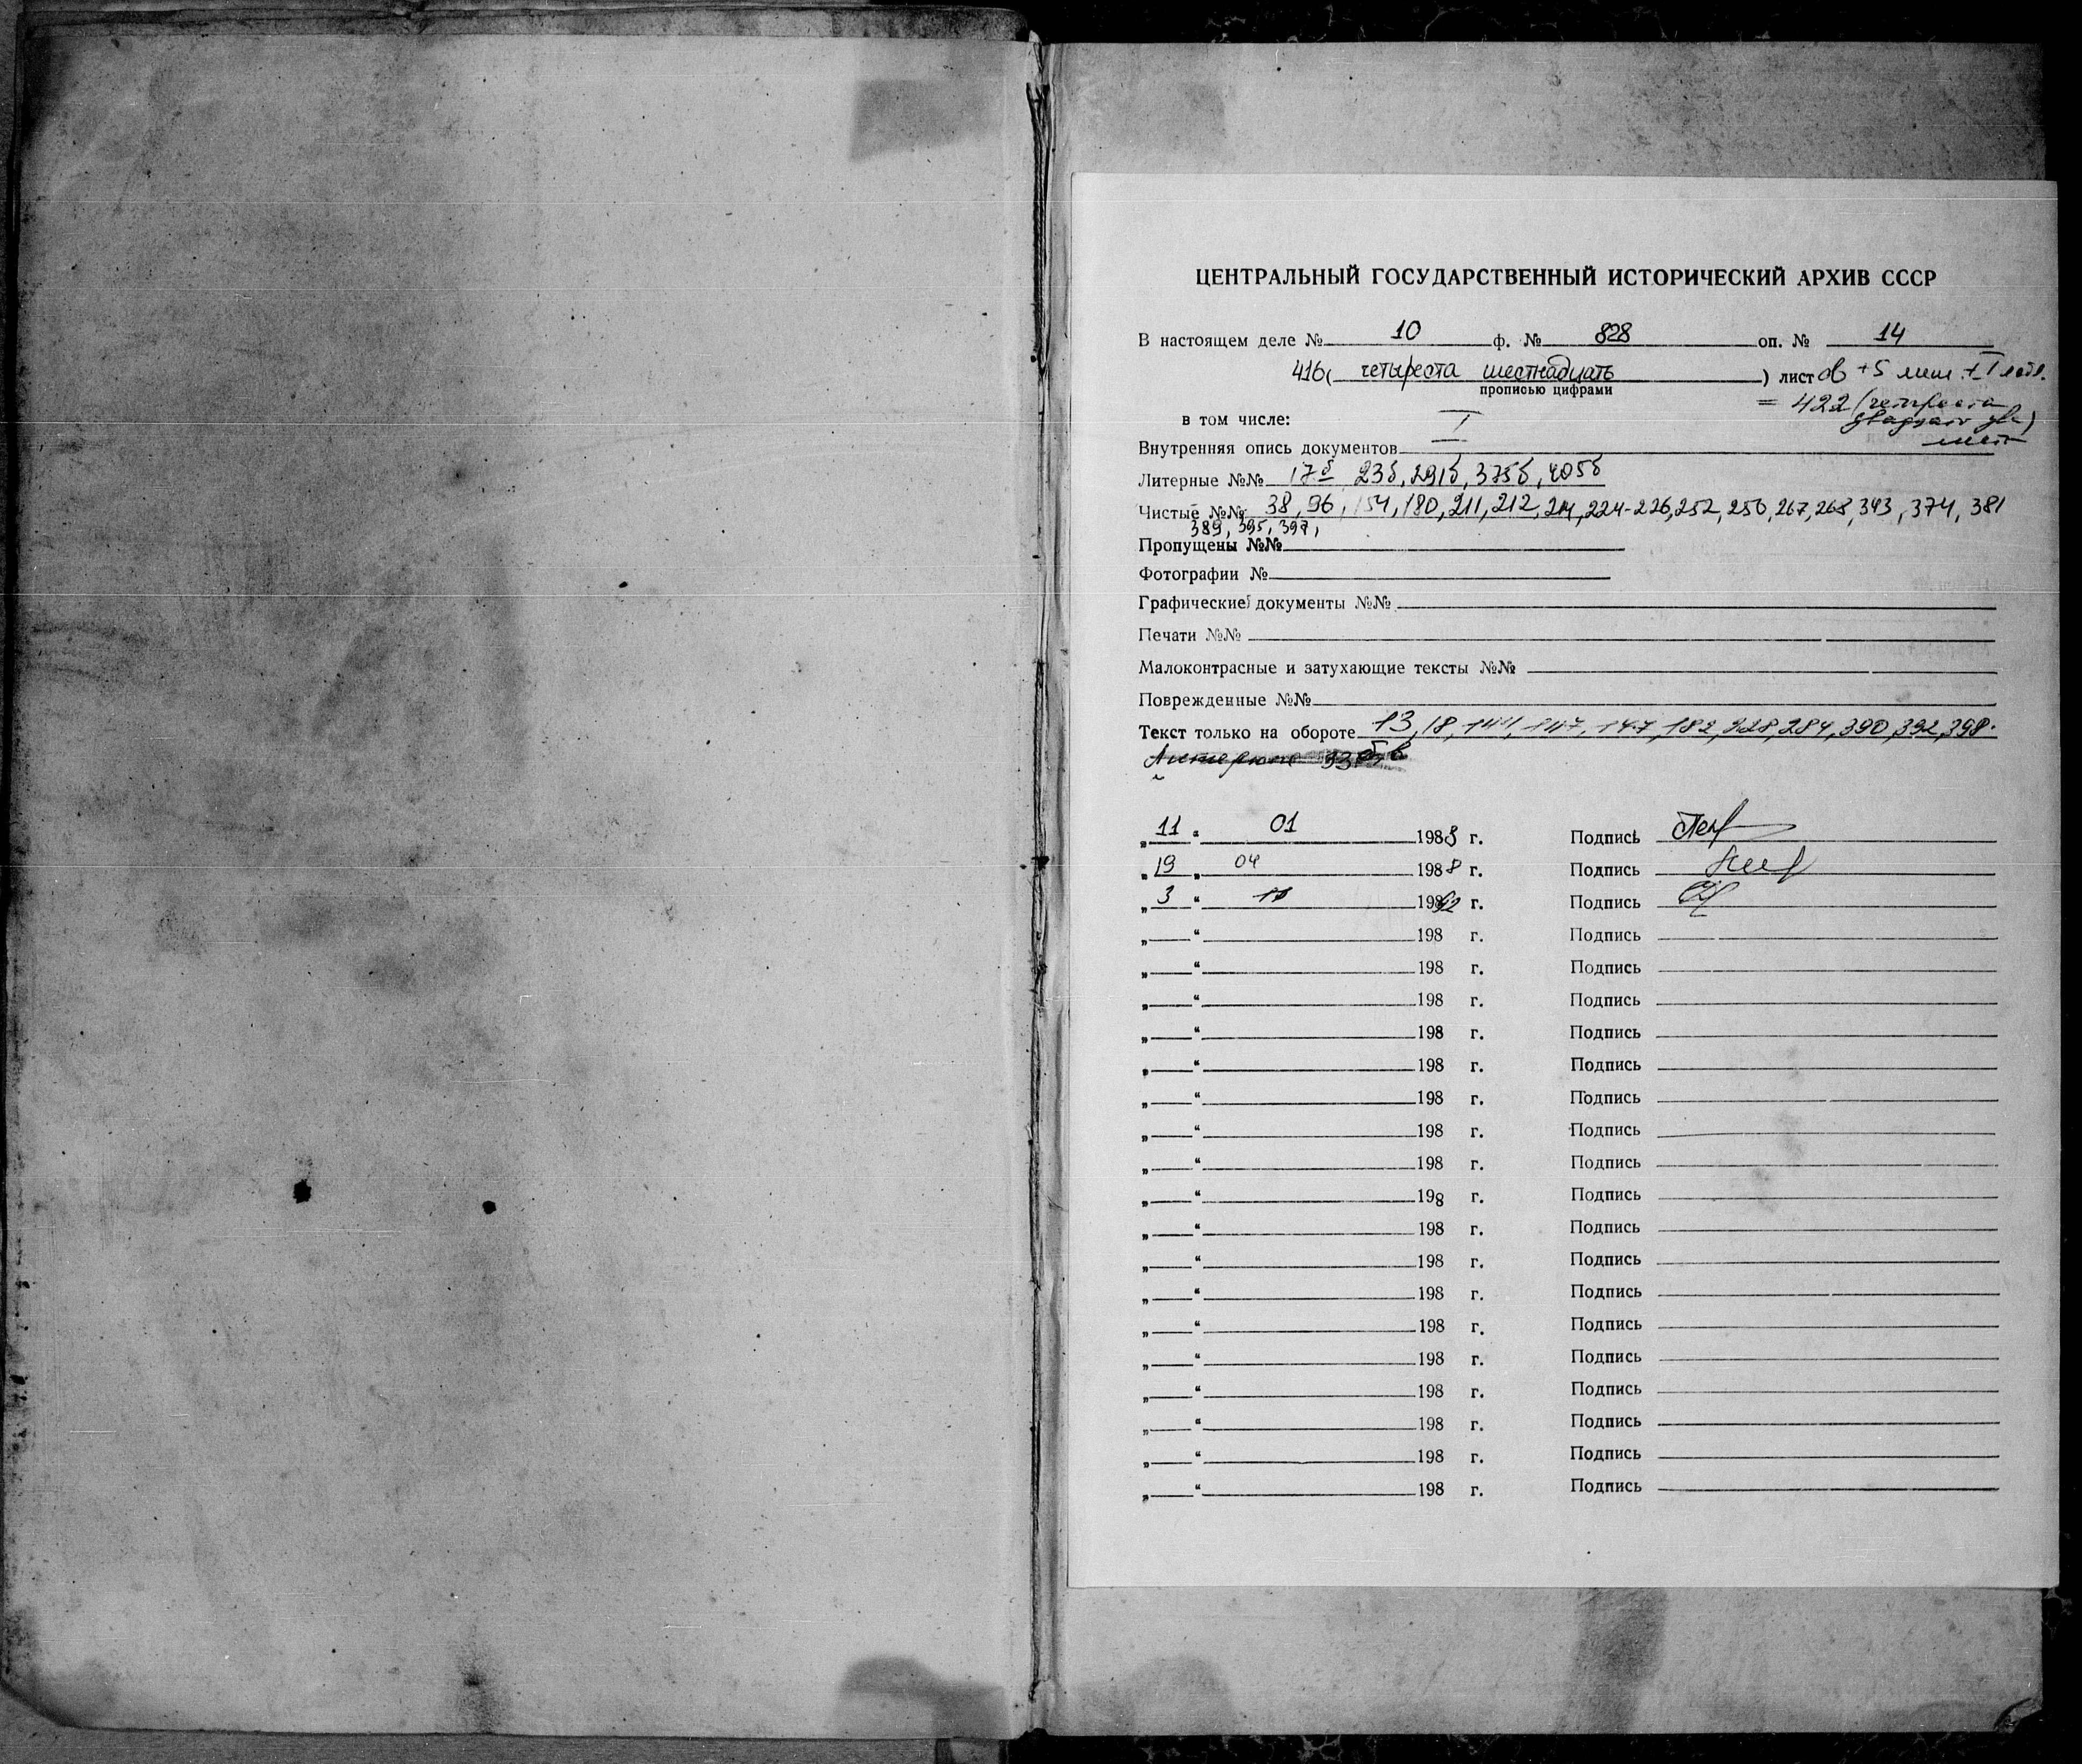 ЦЕНТРАЛЬНЫЙ ГОСУДАРСТВЕННЫЙ ИСТОРИЧЕСКИЙ АРХИВ СССР
В настоящем деле № 10 ф. № 828 оп. № 14
416 ( четыреста шестнадцать ) листов +5 лит. + I
прописью цифрами
= 422 (четыреста
в том числе: двадцать два)
Внутренняя опись документов I
Литерные №№ 17б 23б, 291б, 375б, 405б
Чистые №№ 38, 96, 154, 180, 211, 212, 214, 224-226, 252, 256, 267, 268, 343, 374, 381
389, 395, 397,
Пропущены №№
Фотографии №
Графические документы №№
Печати №№
Малоконтрастные и затухающие тексты №№
Поврежденные №№
Текст только на обороте 13, 18, 144, 147, 182, 228, 284, 390, 392, 398.
Литерные
„ 11 “ 01 1983 г. Подпись
„ 19 „ 04 1988 г. Подпись
„ 3 “ 10 1992 г. Подпись
„ “ 198 г. Подпись
„ “ 198 г. Подпись
„ “ 198 г. Подпись
„ “ 198 г. Подпись
„ “ 198 г. Подпись
„ “ 198 г. Подпись
„ “ 198 г. Подпись
„ “ 198 г. Подпись
„ “ 198 г. Подпись
„ “ 198 г. Подпись
„ “ 198 г. Подпись
„ “ 198 г. Подпись
„ “ 198 г. Подпись
„ “ 198 г. Подпись
„ “ 198 г. Подпись
„ “ 198 г. Подпись
„ “ 198 г. Подпись
„ “ 198 г. Подпись